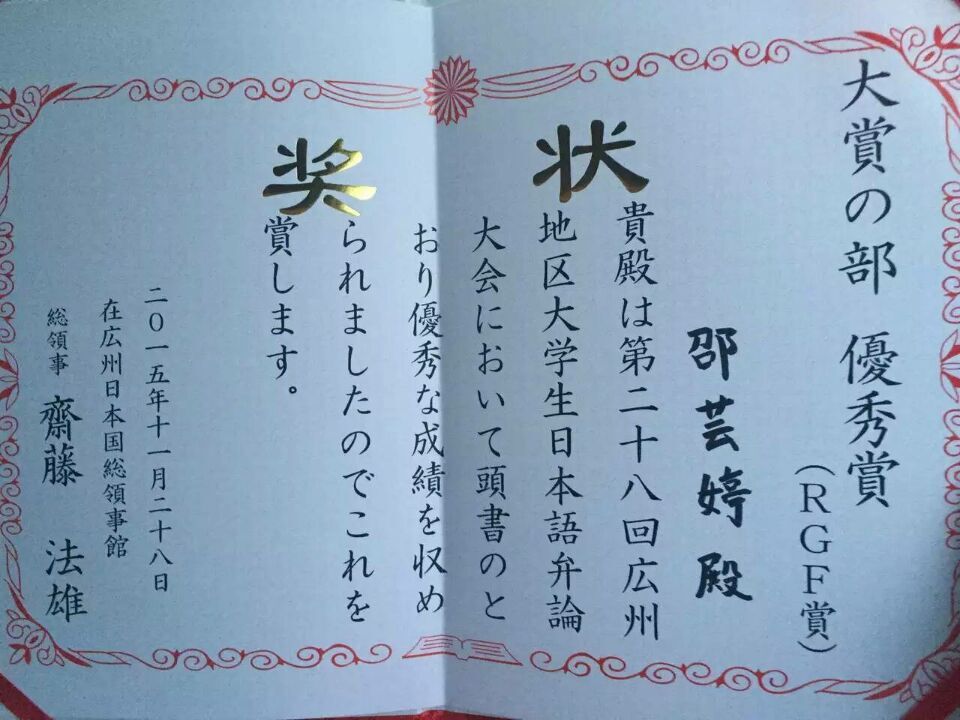 奖状
大賞の部 優秀賞
（RGF賞）
邵芸婷殿
貴殿は第二十八回広州
地区大学生日本語弁論
大会において頭書のと
おり優秀な成績を収め
られましたのでこれを
賞します。
二〇一五年十一月二十八日
在広州日本国総領事館
総領事 齋藤 法雄